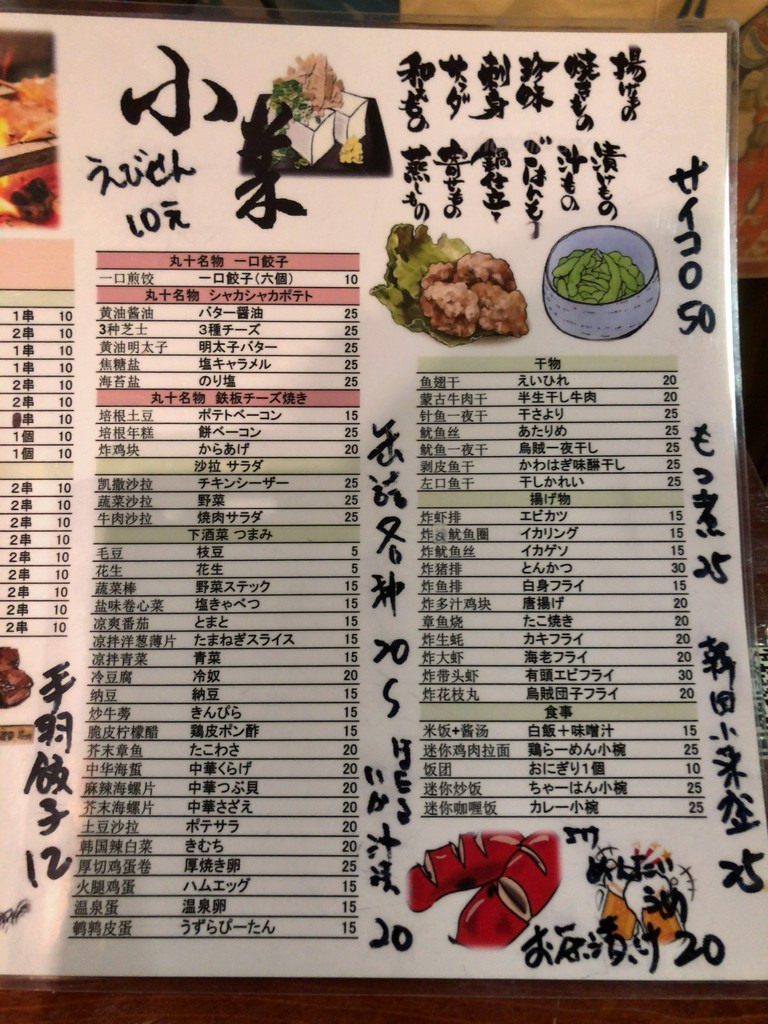 小菜
えびせん
10元
揚げもの
焼きもの
珍味
刺身
サラダ
和えもの
漬けもの
汁もの
ごはんもの
鍋仕立て
寄せもの
蒸しもの
サイコロ 50
1串 10
2串 10
1串 10
1串 10
2串 10
2串 10
串 10
1個 10
1個 10
2串 10
2串 10
2串 10
2串 10
2串 10
2串 10
2串 10
2串 10
2串 10
手羽餃子 12
丸十名物 一口餃子
一口煎饺 一口餃子(六個) 10
丸十名物 シャカシャカポテト
黄油酱油 バター醤油 25
3种芝士 3種チーズ 25
黄油明太子 明太子バター 25
焦糖盐 塩キャラメル 25
海苔盐 のり塩 25
丸十名物 鉄板チーズ焼き
培根土豆 ポテトベーコン 15
培根年糕 餅ベーコン 25
炸鸡块 からあげ 20
沙拉 サラダ
凯撒沙拉 チキンシーザー 25
蔬菜沙拉 野菜 25
牛肉沙拉 焼肉サラダ 25
下酒菜 つまみ
毛豆 枝豆 5
花生 花生 5
蔬菜棒 野菜ステック 15
盐味卷心菜 塩きゃべつ 15
凉爽番茄 とまと 15
凉拌洋葱薄片 たまねぎスライス 15
凉拌青菜 青菜 15
冷豆腐 冷奴 20
纳豆 納豆 15
炒牛蒡 きんぴら 15
脆皮柠檬醋 鶏皮ポン酢 15
芥末章鱼 たこわさ 20
中华海蜇 中華くらげ 20
麻辣海螺片 中華つぶ貝 20
芥末海螺片 中華さざえ 20
土豆沙拉 ポテサラ 20
韩国辣白菜 きむち 20
厚切鸡蛋卷 厚焼き卵 25
火腿鸡蛋 ハムエッグ 15
温泉蛋 温泉卵 15
鹌鹑皮蛋 うずらぴーたん 15
缶詰各種 20〜
20
干物
鱼翅干 えいひれ 20
蒙古牛肉干 半生干し牛肉 20
针鱼一夜干 干さより 25
鱿鱼丝 あたりめ 25
鱿鱼一夜干 烏賊一夜干し 25
剥皮鱼干 かわはぎ味醂干し 25
左口鱼干 干しかれい 25
揚げ物
炸虾排 エビカツ 15
炸鱿鱼圈 イカリング 15
炸鱿鱼丝 イカゲソ 15
炸猪排 とんかつ 30
炸鱼排 白身フライ 15
炸多汁鸡块 唐揚げ 20
章鱼烧 たこ焼き 20
炸生蚝 カキフライ 20
炸大虾 海老フライ 20
炸带头虾 有頭エビフライ 30
炸花枝丸 烏賊団子フライ 20
食事
米饭+酱汤 白飯＋味噌汁 15
迷你鸡肉拉面 鶏らーめん小椀 25
饭团 おにぎり1個 10
迷你炒饭 ちゃーはん小椀 25
迷你咖喱饭 カレー小椀 25
もつ煮 25
25
めんたい
うめ
お茶漬け 20